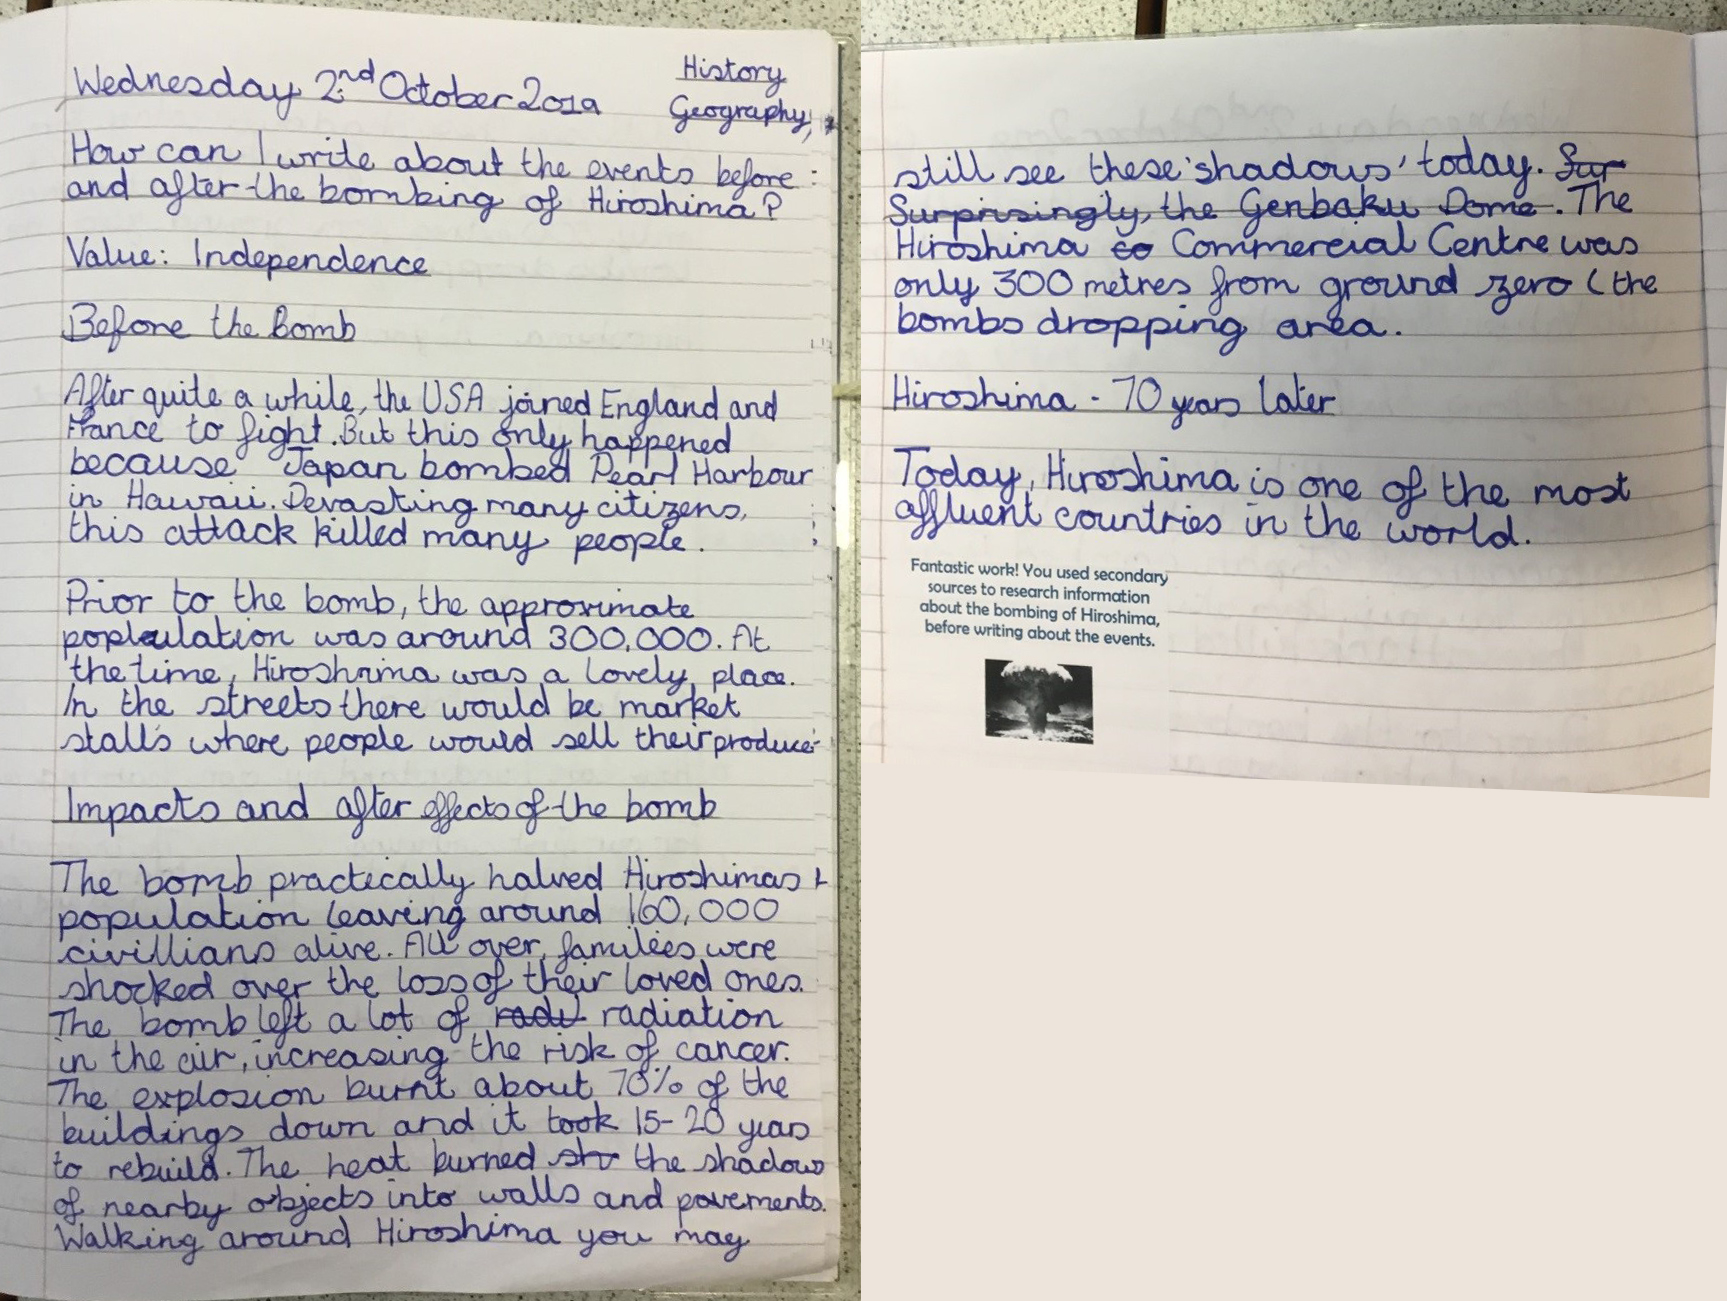 Wednesday 2nd October 2019
History
Geography
How can I write about the events before
and after the bombing of Hiroshima?
Value: Independence
Before the Bomb
After quite a while, the USA joined England and
France to fight. But this only happened
because Japan bombed Pearl Harbour
in Hawaii. Devasting many citizens,
this attack killed many people.
Prior to the bomb, the approximate
poplulation was around 300,000. At
the time, Hiroshima was a lovely place.
In the streets there would be market
stalls where people would sell their produce.
Impacts and after effects of the bomb
The bomb practically halved Hiroshimas
population leaving around 160,000
civillians alive. All over, families were
shocked over the loss of their loved ones.
The bomb left a lot of radi radiation
in the air, increasing the risk of cancer.
The explosion burnt about 70% of the
buildings down and it took 15-20 years
to rebuild. The heat burned sh the shadows
of nearby objects into walls and pavements.
Walking around Hiroshima you may
still see these 'shadows' today. Sur
Surprisingly, the Genbaku Dome. The
Hiroshima co Commercial Centre was
only 300 metres from ground zero (the
bombs dropping area.
Hiroshima - 70 years later
Today, Hiroshima is one of the most
affluent countries in the world.
Fantastic work! You used secondary
sources to research information
about the bombing of Hiroshima,
before writing about the events.